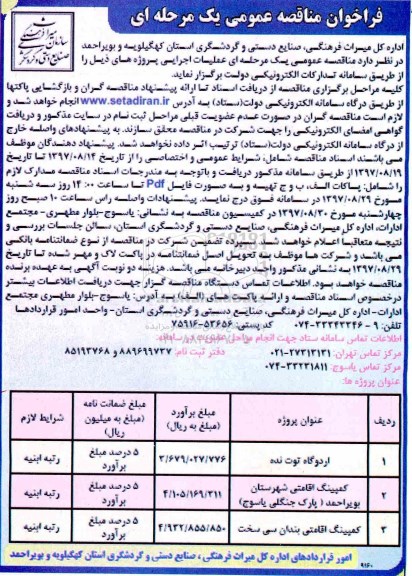 فراخوان مناقصه عمومی یک مرحله ای
اداره کل میراث فرهنگی، صنایع دستی و گردشگری استان کهگیلویه و بویراحمد
در نظر دارد مناقصه عمومی یک مرحله ای عملیات اجرایی پروژه های ذیل را
از طریق سامانه تدارکات الکترونیکی دولت برگزار نماید.
کلیه مراحل برگزاری مناقصه از دریافت اسناد تا ارائه پیشنهاد مناقصه گران و بازگشایی پاکتها
از طریق درگاه سامانه الکترونیکی دولت(ستاد) به آدرس www.setadiran.ir انجام خواهد شد و
لازم است مناقصه گران در صورت عدم عضویت قبلی مراحل ثبت نام در سایت مذکور و دریافت
گواهی امضای الکترونیکی را جهت شرکت در مناقصه محقق سازند. به پیشنهادهای واصله خارج
از درگاه سامانه الکترونیکی دولت(ستاد) ترتیب اثر داده نخواهد شد. پیشنهاد دهندگان موظف
می باشند اسناد مناقصه شامل، شرایط عمومی و اختصاصی را از تاریخ ۱۳۹۷/۰۸/۱۴ تا تاریخ
۱۳۹۷/۰۸/۱۹ از طریق سامانه مذکور دریافت و باتوجه به مندرجات اسناد مناقصه مدارک لازم
را شامل: پاکات الف، ب و ج تهیه و به صورت فایل Pdf تا ساعت ۱۴:۰۰ روز سه شنبه
مورخ ۱۳۹۷/۰۸/۲۹ در سامانه فوق درج نمایند. پیشنهادات واصله راس ساعت ۱۰ صبح روز
چهارشنبه مورخ ۱۳۹۷/۰۸/۳۰ در کمیسیون مناقصه به نشانی: یاسوج-بلوار مطهری- مجتمع
ادارات، اداره کل میراث فرهنگی، صنایع دستی و گردشگری استان، سالن جلسات بررسی و
نتیجه متعاقبا اعلام خواهد شد. سپرده تضمین شرکت در مناقصه از نوع ضمانتنامه بانکی
می باشد و شرکت ها موظف به تحویل اصل ضمانتنامه در پاکت لاک و مهر شده تا تاریخ
۱۳۹۷/۰۸/۲۹ به نشانی مذکور واحد دبیرخانه می باشد. هزینه دو نوبت آگهی به عهده برنده
مناقصه خواهد بود. اطلاعات تماس دستگاه مناقصه گزار جهت دریافت اطلاعات بیشتر
درخصوص اسناد مناقصه و ارائه پاکت های الف: آدرس: یاسوج-بلوار مطهری مجتمع
ادارات- اداره کل میراث فرهنگی، صنایع دستی و گردشگری استان-واحد امور قراردادها
تلفن: ۹ - ۰۷۴-۳۳۳۴۳۲۴۶ کد پستی: ۵۳۶۵۶-۷۵۹۱۶
اطلاعات تماس سامانه ستاد جهت انجام مراحل عضویت در سامانه:
مرکز تماس تهران: ۲۷۳۱۳۱۳۱-۰۲۱ دفتر ثبت نام: ۸۸۹۶۹۷۳۷ و ۸۵۱۹۳۷۶۸
مرکز تماس یاسوج: ۳۳۲۳۱۸۱۱-۰۷۴
عنوان پروژه ها:
ردیف عنوان پروژه مبلغ برآورد (مبلغ به ریال) مبلغ ضمانت نامه (مبلغ به میلیون ریال) شرایط لازم
۱ اردوگاه توت نده ۳/۶۷۹/۰۲۷/۷۷۶ ۵ درصد مبلغ برآورد رتبه ابنیه
۲ کمپینگ اقامتی شهرستان بویراحمد ( پارک جنگلی یاسوج) ۴/۱۰۵/۱۶۹/۳۱۱ ۵ درصد مبلغ برآورد رتبه ابنیه
۳ کمپینگ اقامتی بندان سی سخت ۴/۹۳۲/۸۵۵/۸۵۰ ۵ درصد مبلغ برآورد رتبه ابنیه
امور قراردادهای اداره کل میراث فرهنگی ، صنایع دستی و گردشگری استان کهگیلویه و بویراحمد
۹۱۶۰